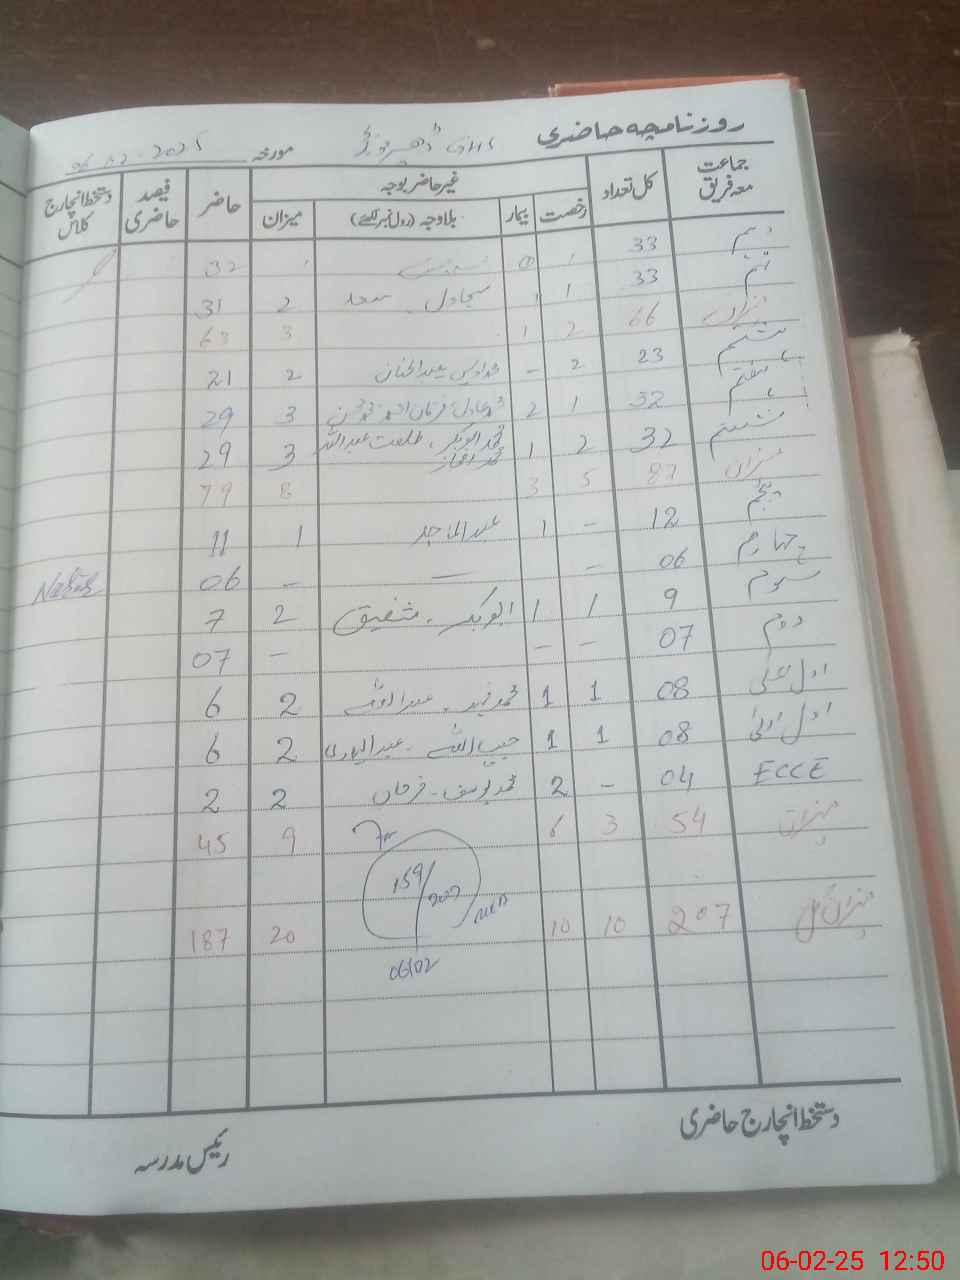 روزنامچہ حاضری مورخہ 06-02-2025
جماعت معہ فریق کل تعداد غیر حاضر بوجہ حاضر فیصد حاضری دستخط انچارج کلاس
رخصت بیمار بلاوجہ (رول نمبر لکھئے) میزان
دہم 33 1 32
نہم 33 1 1 سجاول۔ سعد 2 31
میزان 66 2 1 3 63
ہشتم 23 2 - محمد ادریس عبدالحنان 2 21
ہفتم 32 1 2 3 29
ششم 32 2 1 محمد ابوبکر۔ طلعت عبداللہ 3 29
میزان 87 5 3 8 79
پنجم 12 - 1 عبدالماجد 1 11
چہارم 06 - — - 06
سوم 9 1 1 ابوبکر۔ شفیق 2 7
دوم 07 - - - 07
اول اعلیٰ 08 1 1 محمد فہد۔ عبداللہ 2 6
اول ادنیٰ 08 1 1 حبیب اللہ۔ عبدالہادی 2 6
ECCE 04 - 2 محمد یوسف۔ فرحان 2 2
میزان 54 3 6 9 45
159/207
میزان کل 207 10 10 20 187
06/02
دستخط انچارج حاضری
رئیس مدرسہ
06-02-25 12:50